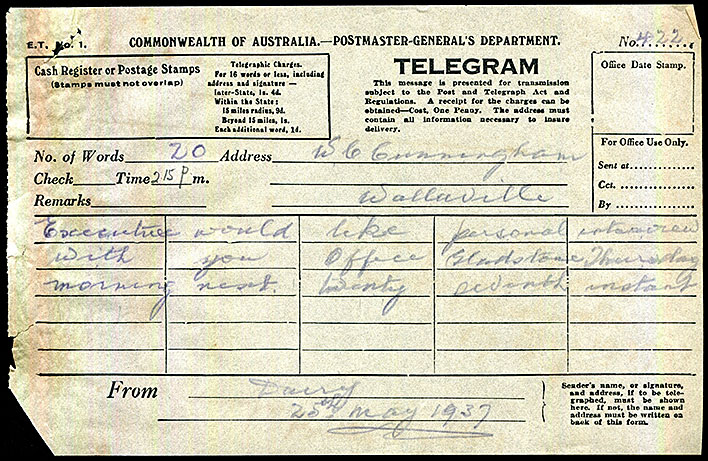 E.T. No. 1.
COMMONWEALTH OF AUSTRALIA.—POSTMASTER-GENERAL'S DEPARTMENT.
No. 422
Cash Register or Postage Stamps
(Stamps must not overlap)
Telegraphic Charges.
For 16 words or less, including
address and signature —
Inter-State, 1s. 4d.
Within the State:
15 miles radius, 9d.
Beyond 15 miles, 1s.
Each additional word, 1d.
TELEGRAM
This message is presented for transmission
subject to the Post and Telegraph Act and
Regulations. A receipt for the charges can be
obtained—Cost, One Penny. The address must
contain all information necessary to insure
delivery.
Office Date Stamp.
For Office Use Only.
Sent at
Cct.
By
No. of Words 20 Address W C Cunningham
Check Time 2.15 p m.
Remarks Wallaville
Executive would like personal interview
with you Office Gladstone Thursday
morning next. twenty seventh instant
From Dairy
25th May 1937
Sender's name, or signature,
and address, if to be tele-
graphed, must be shown
here. If not, the name and
address must be written on
back of this form.